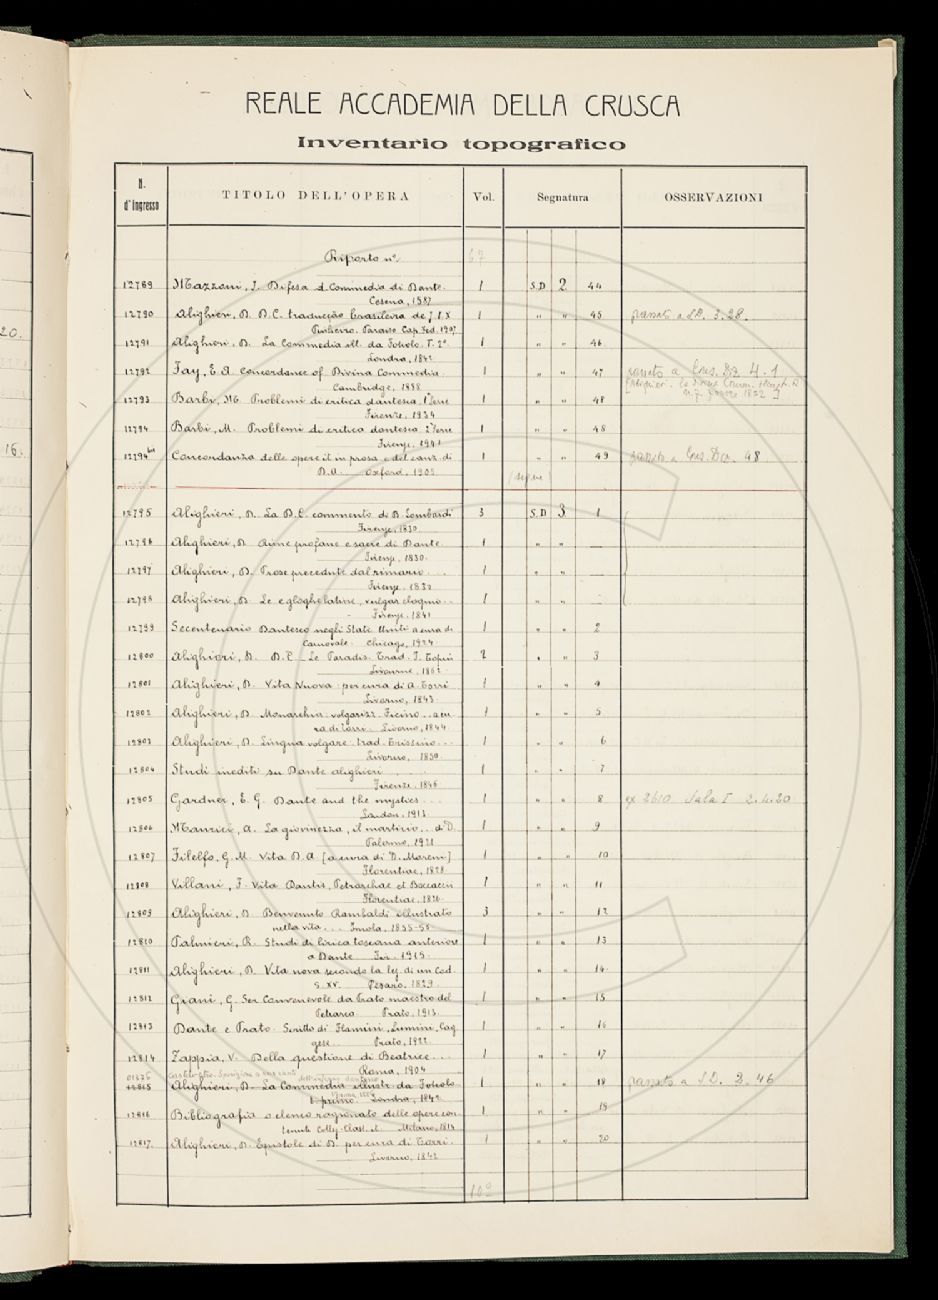 20.
16.
REALE ACCADEMIA DELLA CRUSCA
Inventario topografico
N. d'ingresso TITOLO DELL'OPERA Vol. Segnatura OSSERVAZIONI
Riporto n. 67
12789 Mazzoni, J. Difesa d. Commedia di Dante. 1 S.D 2 44
Cesena, 1587
12790 Alighieri, D. D.C. traducção brasileira de J.P.X 1 " " 45 passato a S.D. 3.28.
Pinheiro. Paraiso Cap. Fed. 1907
12791 Alighieri, D. La Commedia ill. da Foscolo. T. 2° 1 " " 46
Londra, 1842
12792 Fay, E A. Concordance of Divina Commedia. 1 " " 47 passato a Crus. Da. 4.1
Cambridge, 1888
12793 Barbi, M. Problemi di critica dantesca. 1ª serie 1 " " 48
Firenze, 1934
12794 Barbi, M. Problemi di critica dantesca 2ª serie 1 " " 48
Firenze, 1941
12794 bis Concordanza delle opere it. in prosa e del canz. di 1 " " 49 passato a Crus. Da. 48
D.A. Oxford, 1905
(segue)
12795 Alighieri, D. La D.C. commento di B. Lombardi 3 S.D 3 1
Firenze, 1830
12796 Alighieri, D. Rime profane e sacre di Dante 1 " " —
Firenze, 1830.
12797 Alighieri, D. Prose precedute dal rimario... 1 " " —
Firenze, 1830
12798 Alighieri, D. Le egloghe latine, vulgar eloquio.. 1 " " —
Firenze, 1841
12799 Secentenario Dantesco negli Stati Uniti a cura di 1 " " 2
Carnovale. Chicago, 1924
12800 Alighieri, D. D.C. - Le Paradis. Trad. J. Topin 2 " " 3
Livourne, 1862
12801 Alighieri, D. Vita Nuova per cura di A. Torri 1 " " 4
Livorno, 1843
12802 Alighieri, D. Monarchia volgarizz. Ficino... a cu- 1 " " 5
ra di Torri. Livorno, 1844
12803 Alighieri, D. Lingua volgare. trad. Trissino... 1 " " 6
Livorno, 1850
12804 Studi inediti su Dante Alighieri 1 " " 7
Firenze, 1846
12805 Gardner, E. G. Dante and the mystics... 1 " " 8 ex 2610 Sala I 2.4.20
London, 1913
12806 Maurici, A. La giovinezza, il martirio... di D. 1 " " 9
Palermo, 1921
12807 Filelfo, G. M. Vita D. A. [a cura di D. Moreni] 1 " " 10
Florentiae, 1828
12808 Villani, F. Vita Dantis, Petrarchae et Boccaccii 1 " " 11
Florentiae, 1826
12809 Alighieri, D. Benvenuto Rambaldi illustrato 3 " " 12
nella vita... Imola, 1855-56
12810 Palmieri, R. Studi di lirica toscana anteriore 1 " " 13
a Dante. Fir. 1915
12811 Alighieri, D. Vita nova secondo la lez. di un Cod. 1 " " 14
s. XV. Pesaro, 1829
12812 Giani, G. Ser Convenevole da Prato maestro del 1 " " 15
Petrarca Prato, 1913
12813 Dante e Prato. Scritto di Flamini, Lumini, Cag 1 " " 16
gese.. Prato, 1922
12814 Zappia, V. Della questione di Beatrice... 1 " " 17
Roma, 1904
12815 Alighieri, D. La Commedia illustr. da Foscolo 1 " " 18 passato a S.D. 2. 46
T. primo. Londra, 1842
12816 Bibliografia o elenco ragionato delle opere con- 1 " " 19
tenute Collez. Class. it. Milano, 1814
12817 Alighieri, D. Epistole di D. per cura di Torri. 1 " " 20
Livorno, 1842
102